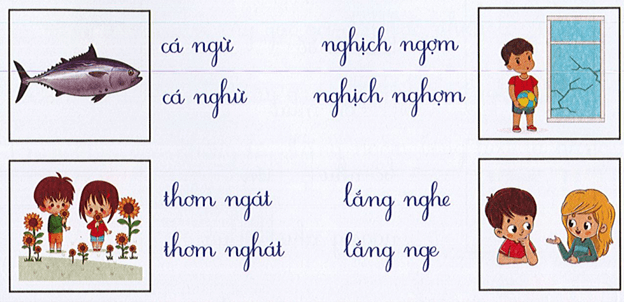 cá ngừ nghịch ngợm
cá nghừ nghịch nghợm
thơm ngát lắng nghe
thơm nghát lắng nge